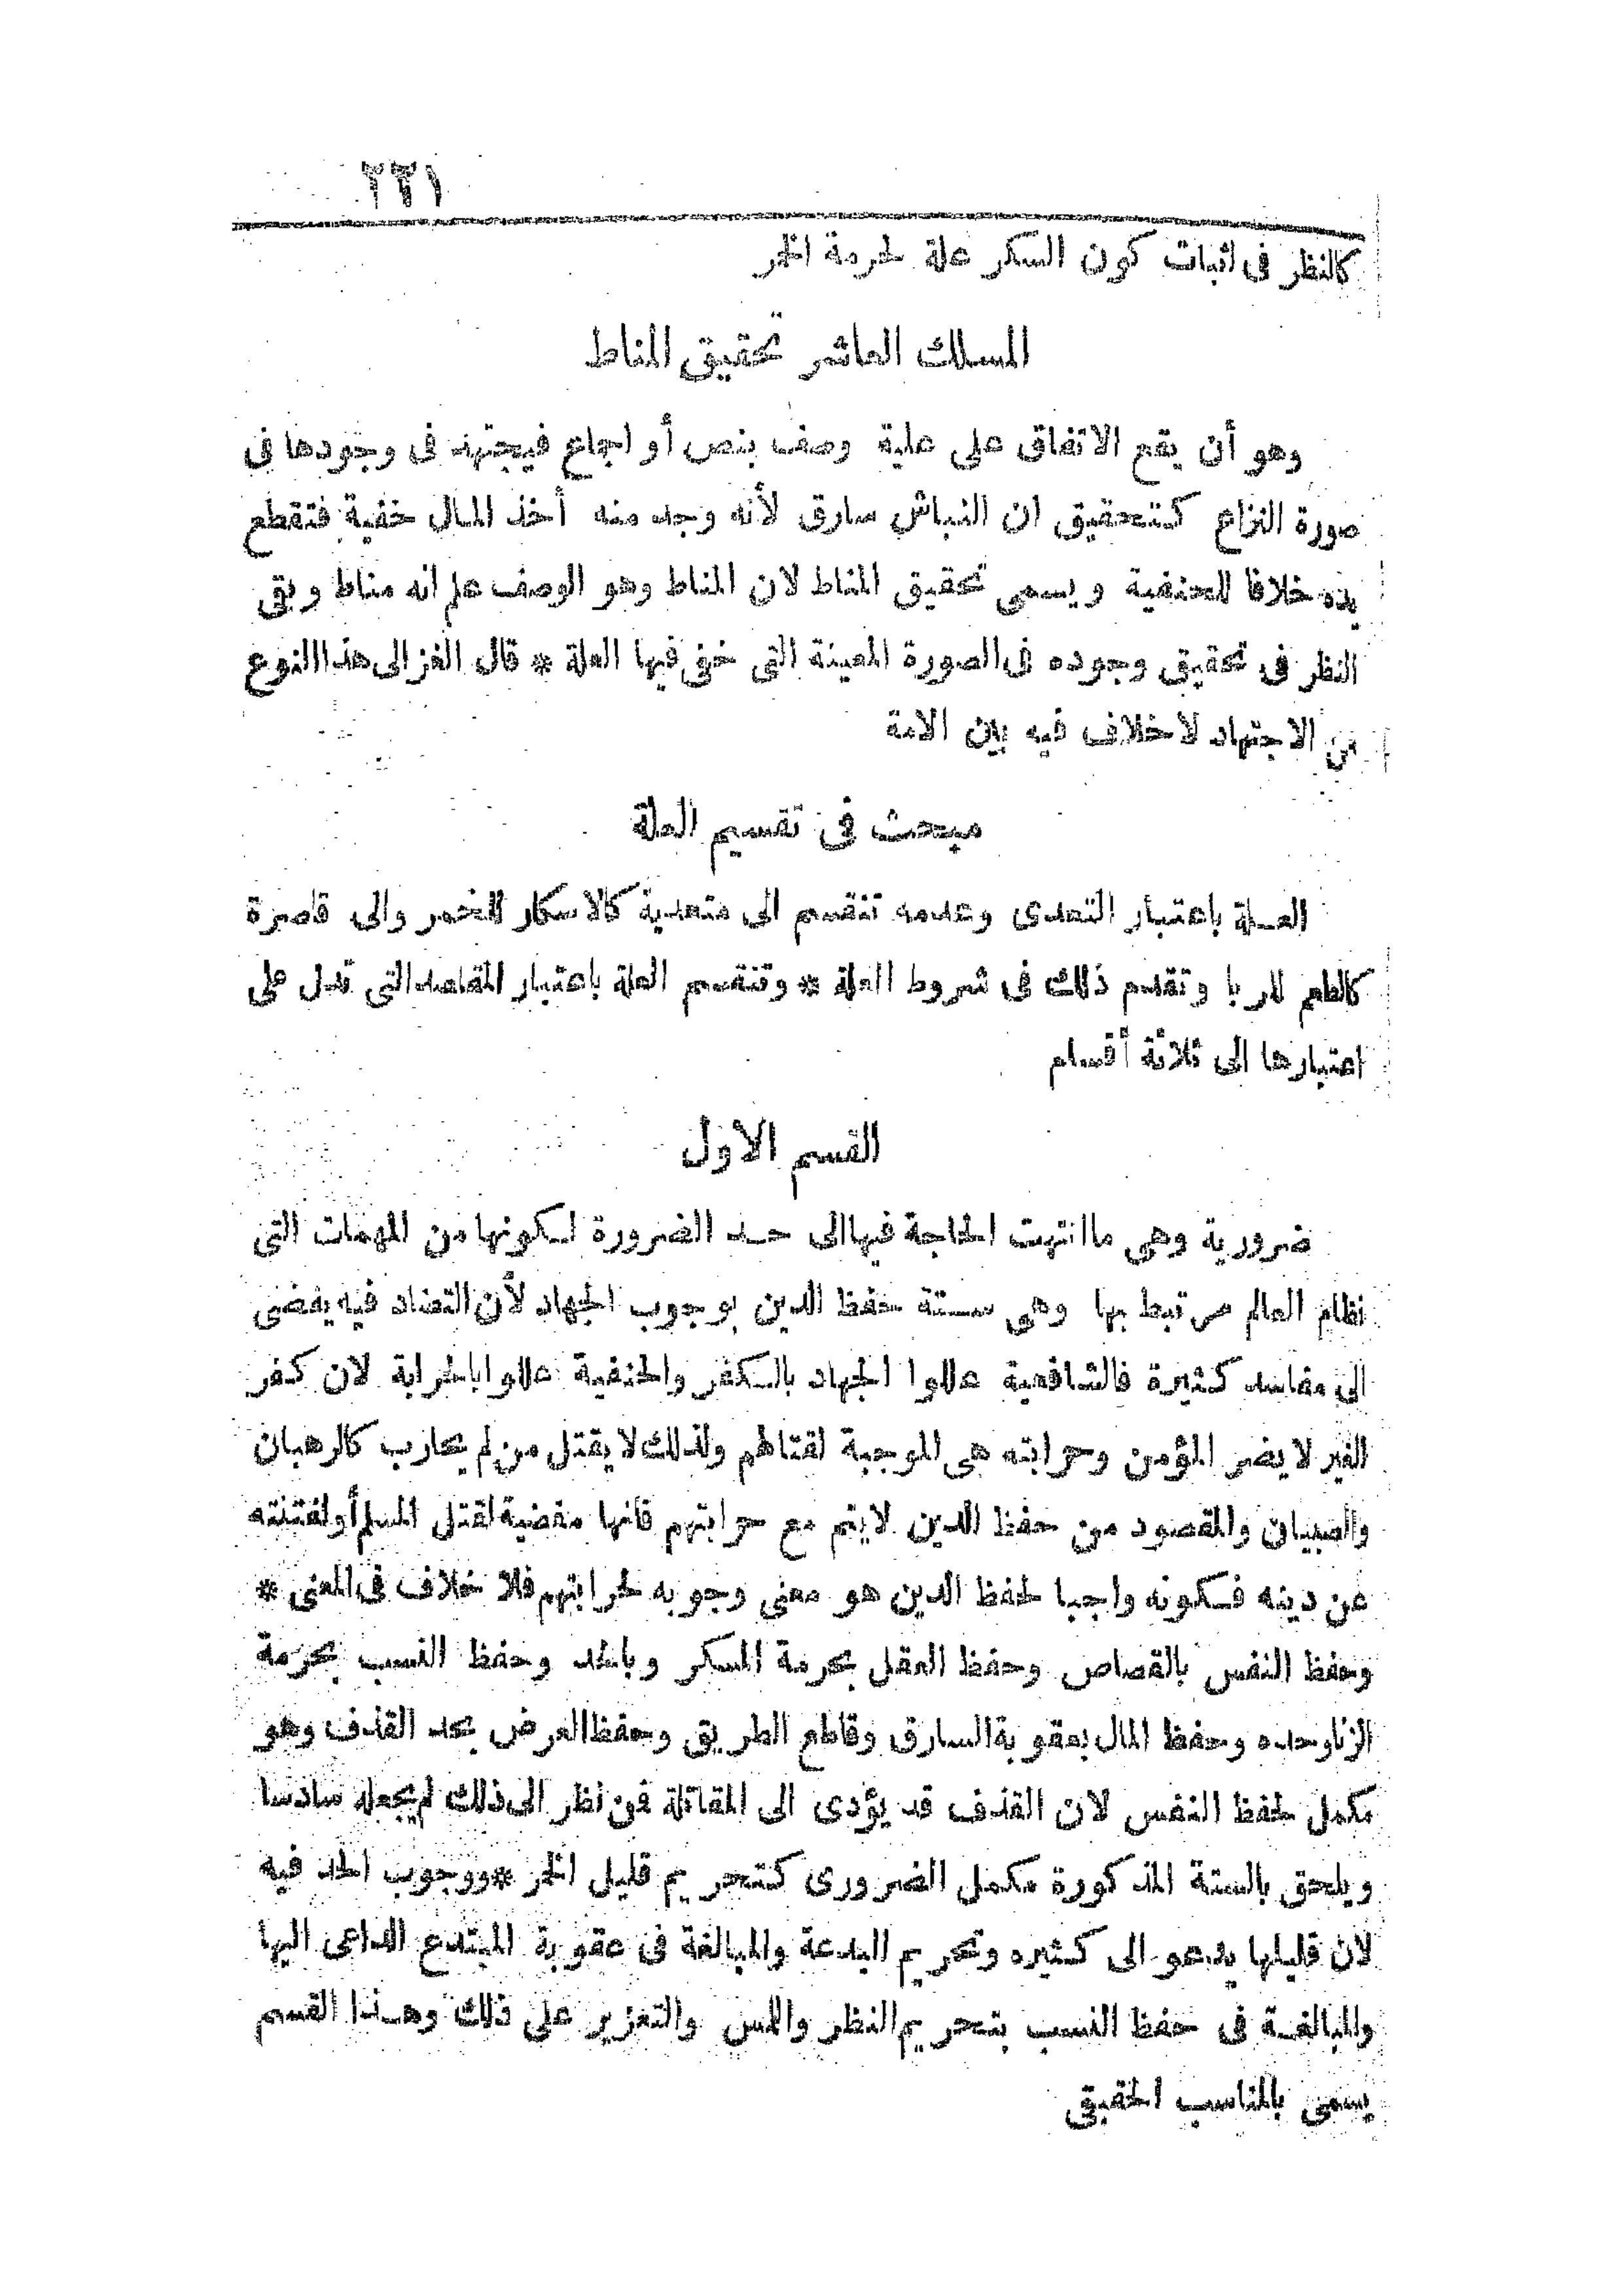 ٢٢١
كالنظر فى اثبات كون السكر علة لحرمة الخمر
المسلك العاشر تحقيق المناط
وهو أن يقع الاتفاق على علية وصف بنص أو اجماع فيجتهد فى وجودها فى
صورة النزاع كتحقيق ان النباش سارق لأنه وجد منه أخذ المال خفية فتقطع
يده خلافا للحنفية ويسمى تحقيق المناط لان المناط وهو الوصف علم انه مناط وبقى
النظر فى تحقيق وجوده فى الصورة المعينة التى خفى فيها العلة * قال الغزالى هذا النوع
من الاجتهاد لاخلاف فيه بين الامة
مبحث فى تقسيم العلة
العلة باعتبار التعدى وعدمه تنقسم الى متعدية كالاسكار للخمر والى قاصرة
كالطعم للربا وتقدم ذلك فى شروط العلة * وتنقسم العلة باعتبار المقاصد التى تدل على
اعتبارها الى ثلاثة أقسام
القسم الاول
ضرورية وهى ما انتهت الحاجة فيها الى حد الضرورة لكونها من المهمات التى
نظام العالم مرتبط بها وهى ستة حفظ الدين بوجوب الجهاد لأن التضاد فيه يفضى
الى مفاسد كثيرة فالشافعية عللوا الجهاد بالكفر والحنفية عللوا بالحرابة لان كفر
الغير لايضر المؤمن وحرابته هى الموجبة لقتالهم ولذلك لايقتل من لم يحارب كالرهبان
والصبيان والمقصود من حفظ الدين لايتم مع حرابتهم فانها مفضية لقتل المسلم أو لفتنته
عن دينه فكونه واجبا لحفظ الدين هو معنى وجوبه لحرابتهم فلا خلاف فى المعنى *
وحفظ النفس بالقصاص وحفظ العقل بحرمة المسكر وبالحد وحفظ النسب بحرمة
الزنا وحده وحفظ المال بعقوبة السارق وقاطع الطريق وحفظ العرض بحد القذف وهو
مكمل لحفظ النفس لان القذف قد يؤدى الى المقاتلة فمن نظر الى ذلك لم يجعله سادسا
ويلحق بالستة المذكورة مكمل الضرورى كتحريم قليل الخمر * ووجوب الحد فيه
لان قليلها يدعو الى كثيره وتحريم البدعة والمبالغة فى عقوبة المبتدع الداعى اليها
والمبالغة فى حفظ النسب بتحريم النظر واللمس والتعزير على ذلك وهذا القسم
يسمى بالمناسب الحقيقى